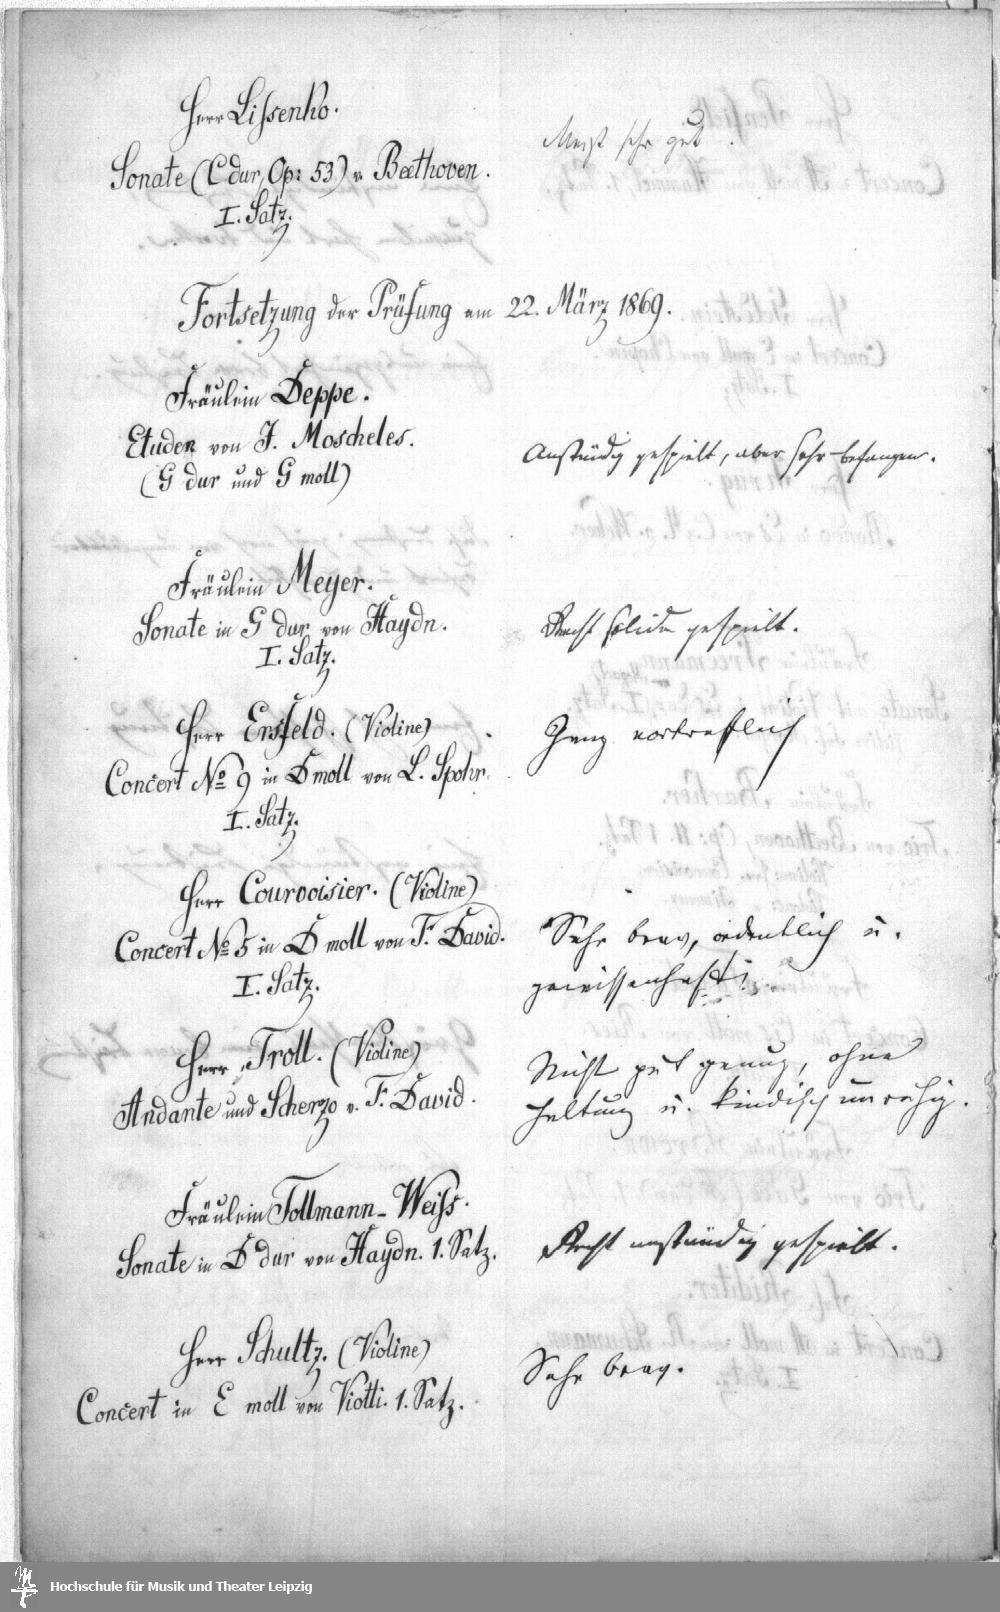 Herr Lissenko.
Sonate (C dur, Op: 53) v. Beethoven.
I. Satz.
Meist sehr gut.
Fortsetzung der Prüfung am 22. März 1869.
Fräulein Deppe.
Etuden von J. Moscheles.
(G dur und G moll)
Anständig gespielt, aber sehr befangen.
Fräulein Meyer.
Sonate in G dur von Haydn.
I. Satz.
Recht solide gespielt.
Herr Ersfeld. (Violine)
Concert No 9 in D moll von L. Spohr.
I. Satz.
Ganz vortrefflich
Herr Courvoisier. (Violine)
Concert No 5 in D moll von F. David.
I. Satz.
Sehr brav, ordentlich u.
gewissenhaft.
Herr Troll. (Violine)
Andante und Scherzo v. F. David.
Nicht gut genug, ohne
Haltung u. kindisch unruhig.
Fräulein Tollmann-Weiss.
Sonate in D dur von Haydn. 1. Satz.
Recht anständig gespielt.
Herr Schultz. (Violine)
Concert in E moll von Viotti. 1. Satz.
Sehr brav.
Hochschule für Musik und Theater Leipzig